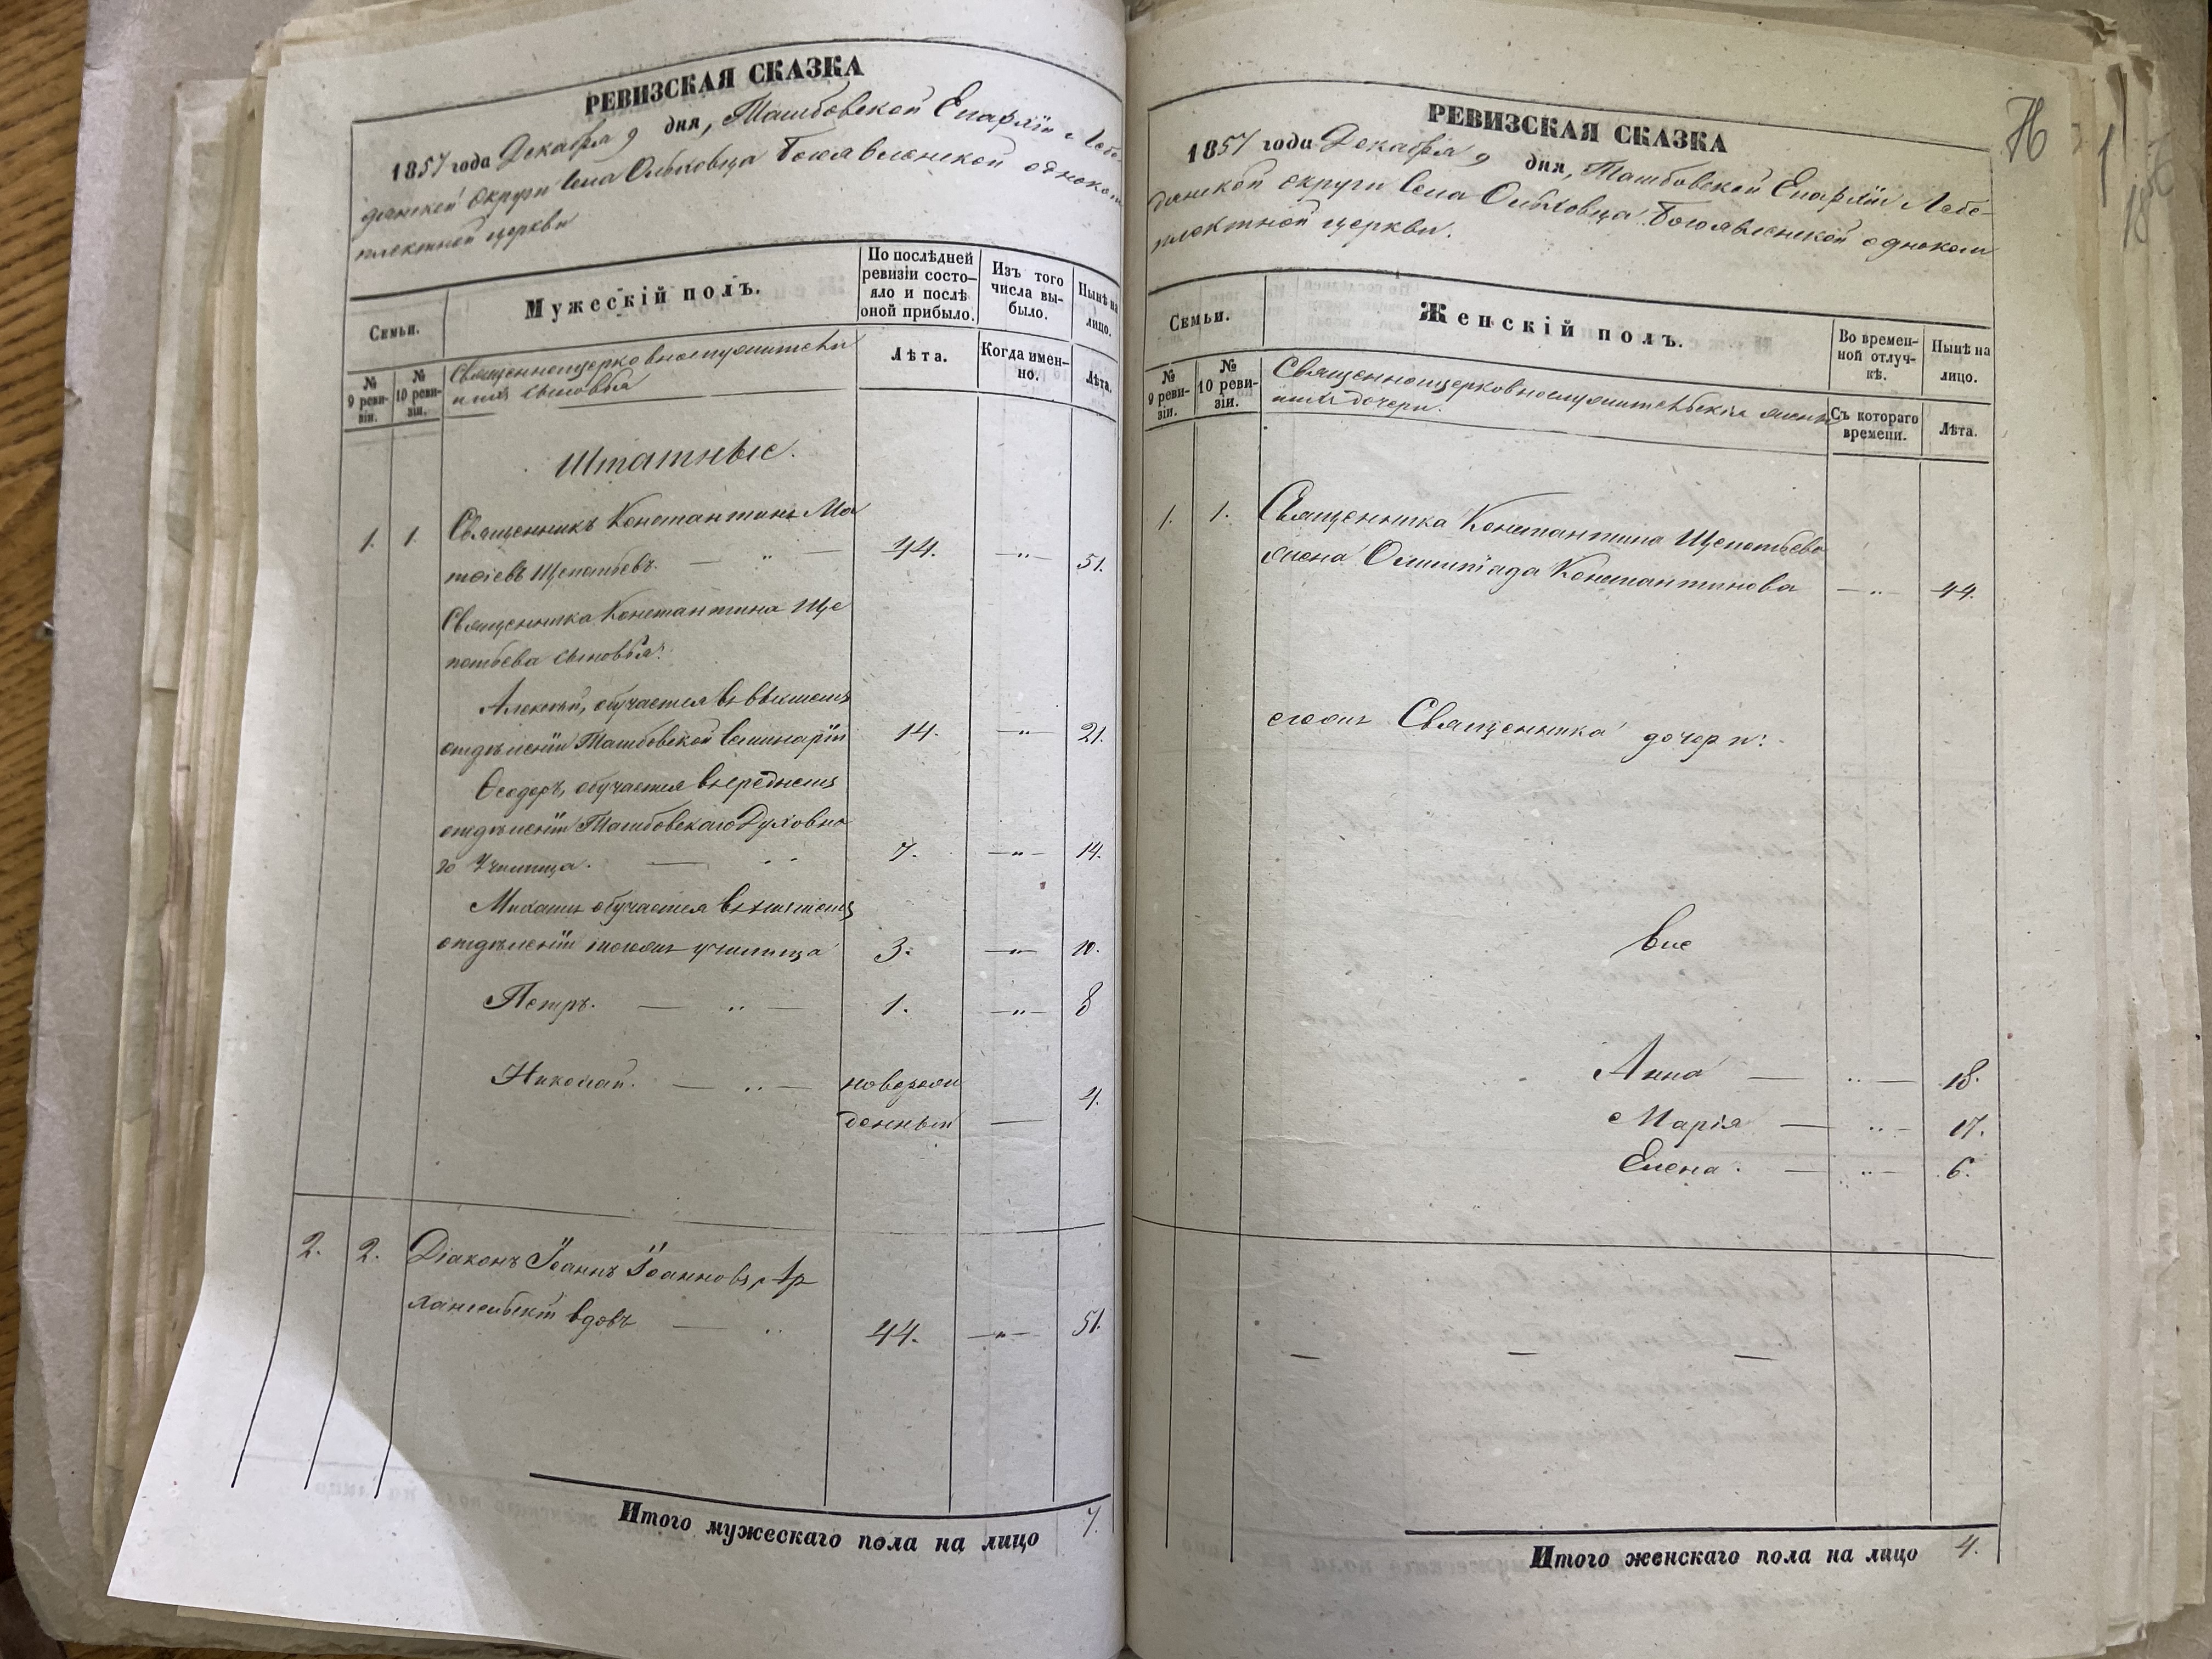 РЕВИЗСКАЯ СКАЗКА
1857 года Декабря 9 дня, Тамбовской Епархіи Лебе-
дянской округи села Ольховца Богоявленской одноком
плектной церкви
Семьи.
Мужескій полъ.
По послѣдней ревизіи состо-
яло и послѣ
оной прибыло.
Изъ того
числа вы-
было.
Нынѣ на
лицо.
№
9 реви-
зіи.
№
10 реви-
зіи.
Священноцерковнослужители
и ихъ сыновья
Лѣта.
Когда имен-
но.
Лѣта.
Штатные.
1. 1. Священникъ Константинъ Ма
тѳіевъ Щепотьевъ. — " — 44. —"— 51.
Священника Константина Ще
потьева сыновья:
Алексѣй, обучается въ высшемъ
отдѣленіи Тамбовской Семинаріи 14. —"— 21.
Ѳеодоръ, обучается въ среднемъ
отдѣленіи Тамбовскаго Духовна
го Училища. — " 7. —"— 14.
Михаилъ обучается въ низшемъ
отдѣленіи тогожъ училища 3. —"— 10.
Петръ. — " — 1. —"— 8
Николай. — " — новорож
денный — 4.
2. 2. Діаконъ Іоаннъ Іоанновъ Ар
хангельскій вдовъ — " 44. —"— 51.
Итого мужескаго пола на лицо 7.
РЕВИЗСКАЯ СКАЗКА
1857 года Декабря 9 дня, Тамбовской Епархіи Лебе-
дянской округи села Ольховца Богоявленской одноком
плектной церкви.
Семьи.
Женскій полъ.
Во времен-
ной отлуч-
кѣ.
Нынѣ на
лицо.
№
9 реви-
зіи.
№
10 реви-
зіи.
Священноцерковнослужительскія жены
и ихъ дочери.
Съ котораго
времени.
Лѣта.
1. 1. Священника Константина Щепотьева
жена Олимпіада Константинова —"— 44.
егожъ Священника дочери:
Анна — " — 18.
Марія — " — 17.
Елена. — " — 6.
— — —
Итого женскаго пола на лицо 4.